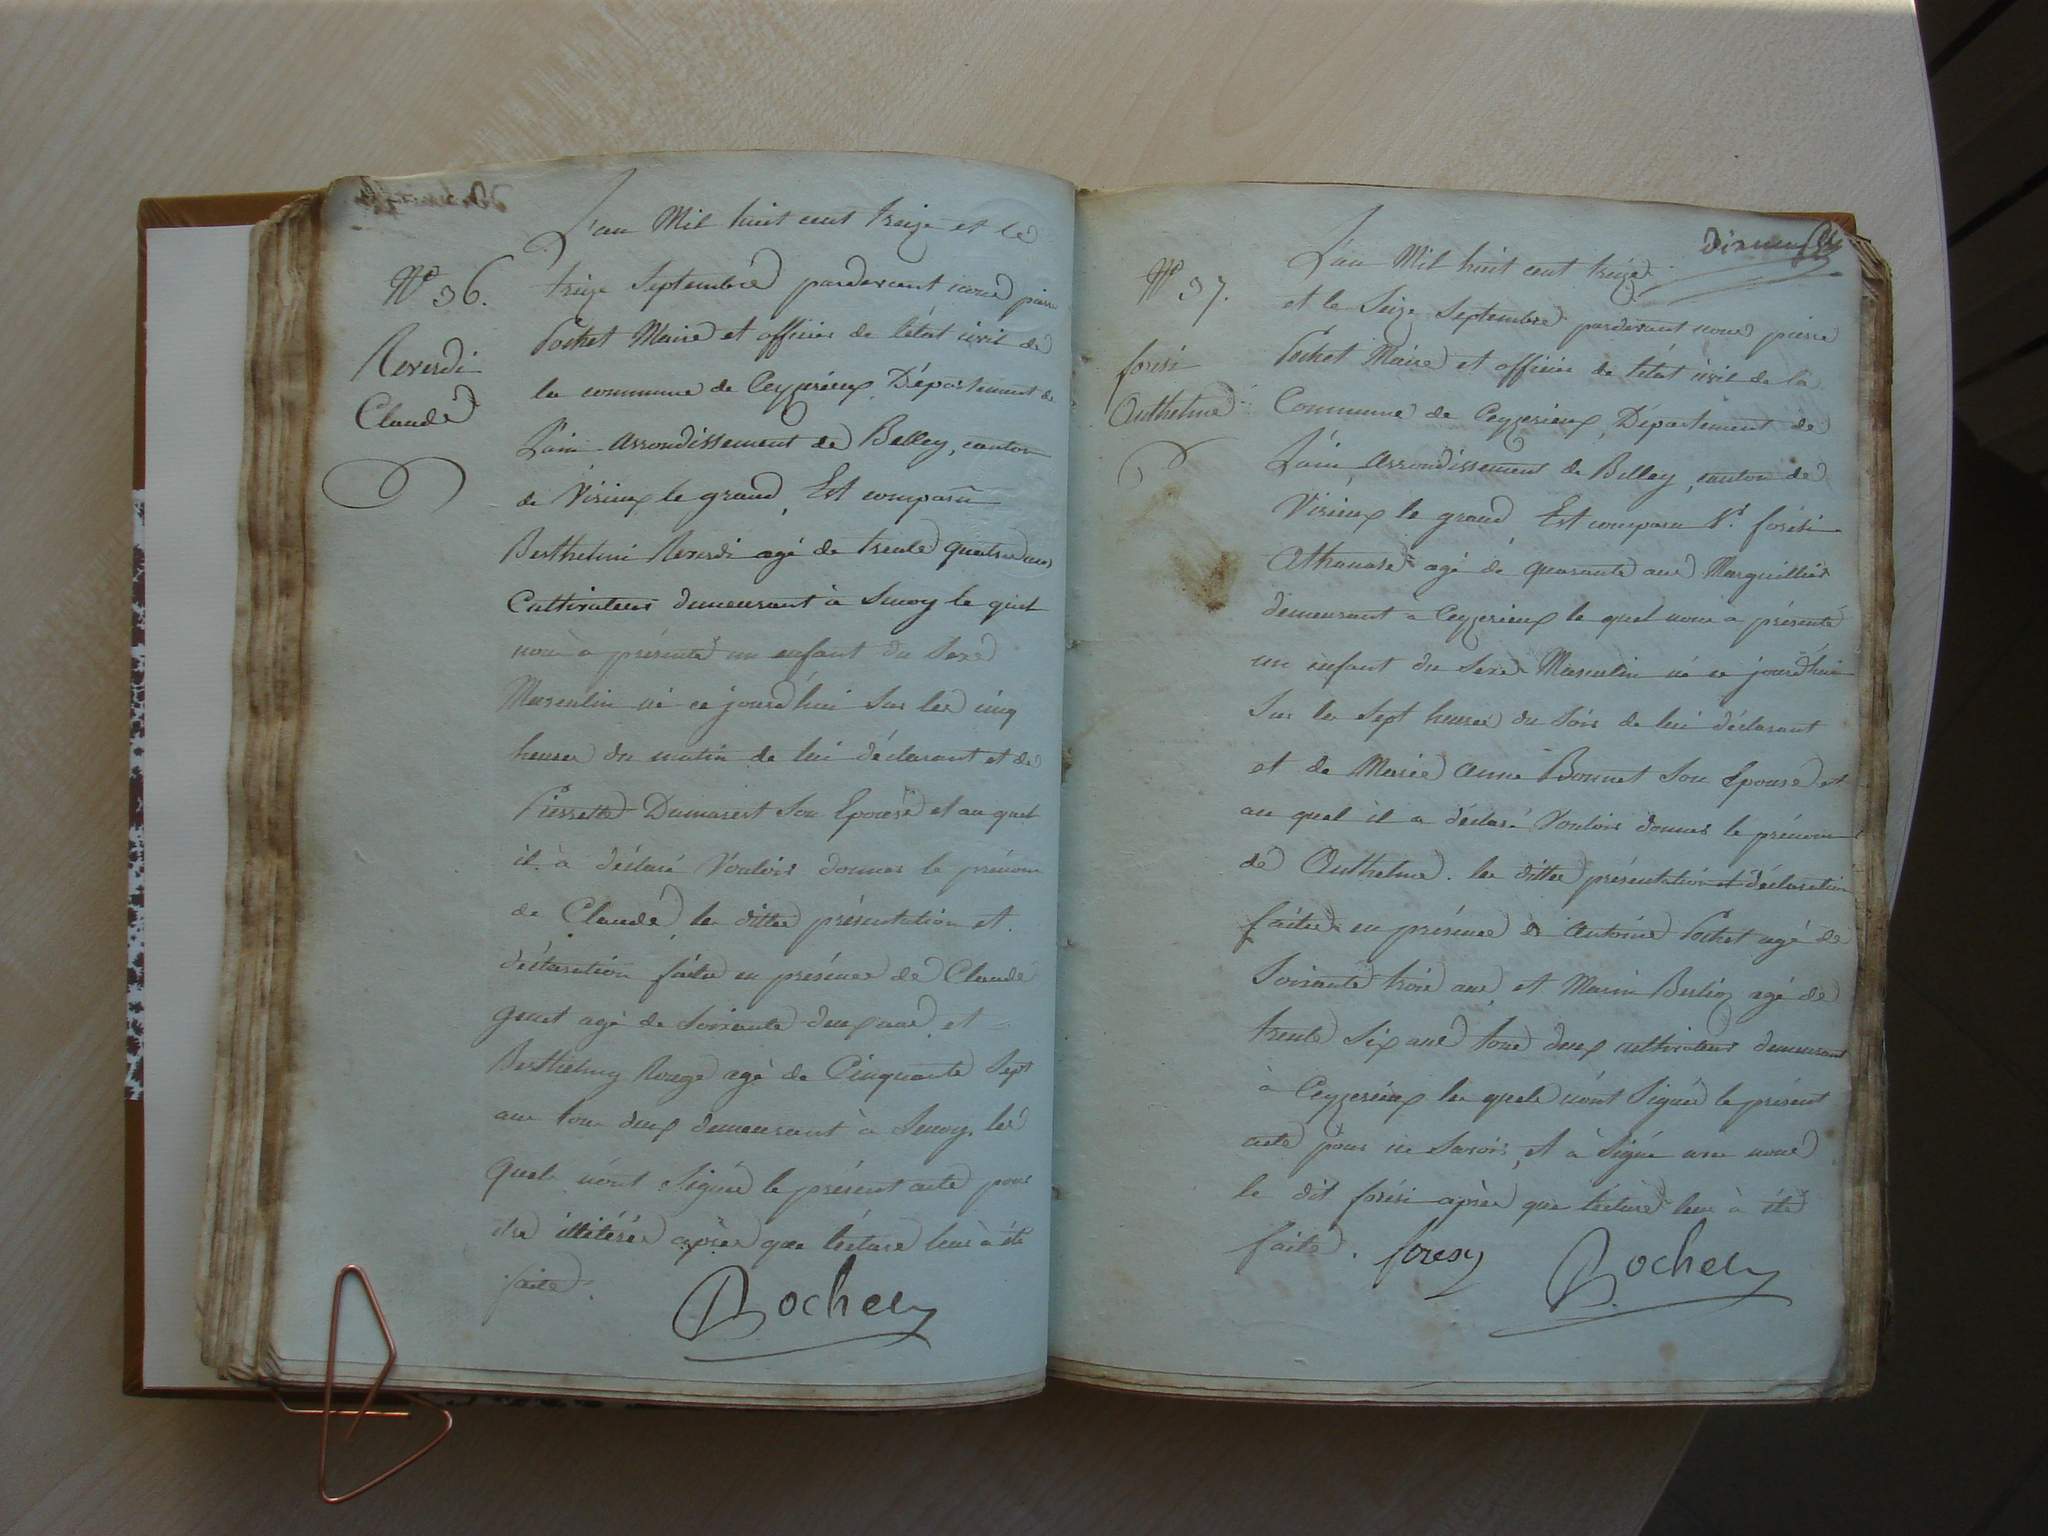 L'an Mil huit cent treize et le
N° 36.
treize Septembre pardevant nous pierre
Pochet Maire et officier de l'état civil de
Reverdi
Claude
la commune de Ceyzerieux, Département de
L'ain Arrondissement de Belley, canton
de Virieux le grand, Est comparu
Berthelmi Reverdi agé de trente quatre ans
Cultivateur demeurant à Senoy le quel
nous à présenté un enfant du Sexe
Masculin né ce jourd'hui Sur les cinq
heures du matin de lui déclarant et de
Pierrette Dumarest Son Epouse et au quel
il à déclaré Vouloir donner le prénom
de Claude, les dittes présentation et
déclaration faites en présence de Claude
agé de Soixante deux ans et
Berthelmy Rouge agé de Cinquante Sept
ans tous deux demeurant à Senoy. les
quels n'ont Signé le présent acte pour
être illitérés après que lécture leur à été
faite.
Pochet
dixneuf
L'an Mil huit cent treize
N° 37.
et le Seize Septembre pardevant nous pierre
Pochet Maire et officier de l'état civil de la
forisi
Anthelme
Commune de Ceyzerieux, Département de
L'ain Arrondissement de Belley, canton de
Virieux le grand Est comparu Sr. forisi
Athanase agé de quarante ans Marguillier
demeurant à Ceyzerieux le quel nous a présenté
un enfant du Sexe Masculin né ce jourd'hui
Sur les Sept heures du Soir de lui déclarant
et de Marie Anne Bonnet Son Epouse et
au quel il a déclaré Vouloir donner le prénom
de Anthelme. les dittes présentation et déclaration
faites en présence de Antoine Pochet agé de
Soixante trois ans et Marin Berlioz agé de
trente Six ans tous deux cultivateurs demeurant
à Ceyzerieux les quels n'ont Signé le présent
acte pour ne Savoir, et à Signé avec nous
le dit forisi après que lécture leur à été
faite. foresy Pochet